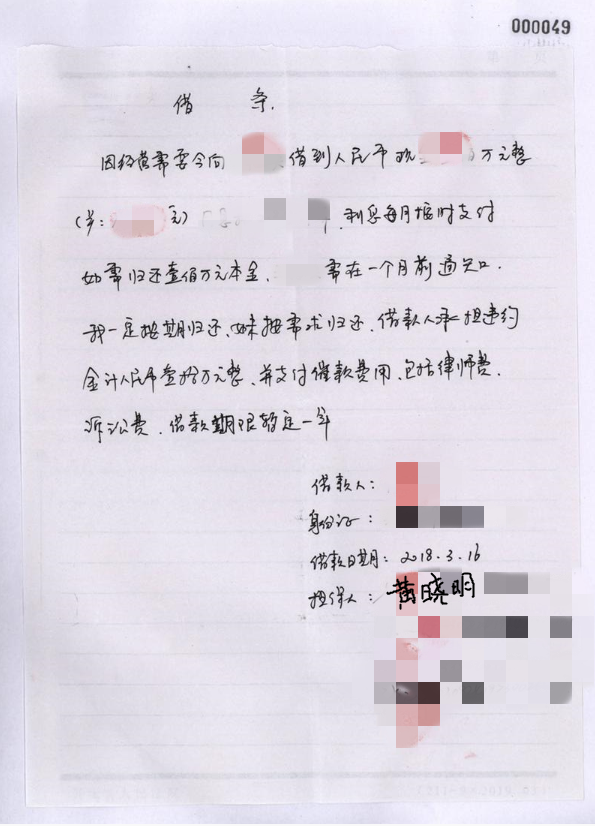 000049
借 条.
因经营需要今向 借到人民币 万元整
(¥: 元) 利息每月按时支付
如需归还壹佰万元本金、 需在一个月前通知.
我一定按期归还、如未按需求归还、借款人承担违约
金计人民币壹拾万元整、并支付催款费用、包括律师费、
诉讼费、借款期限暂定一年
借款人:
身份证:
借款日期: 2018.3.16
担保人: 黄晓明